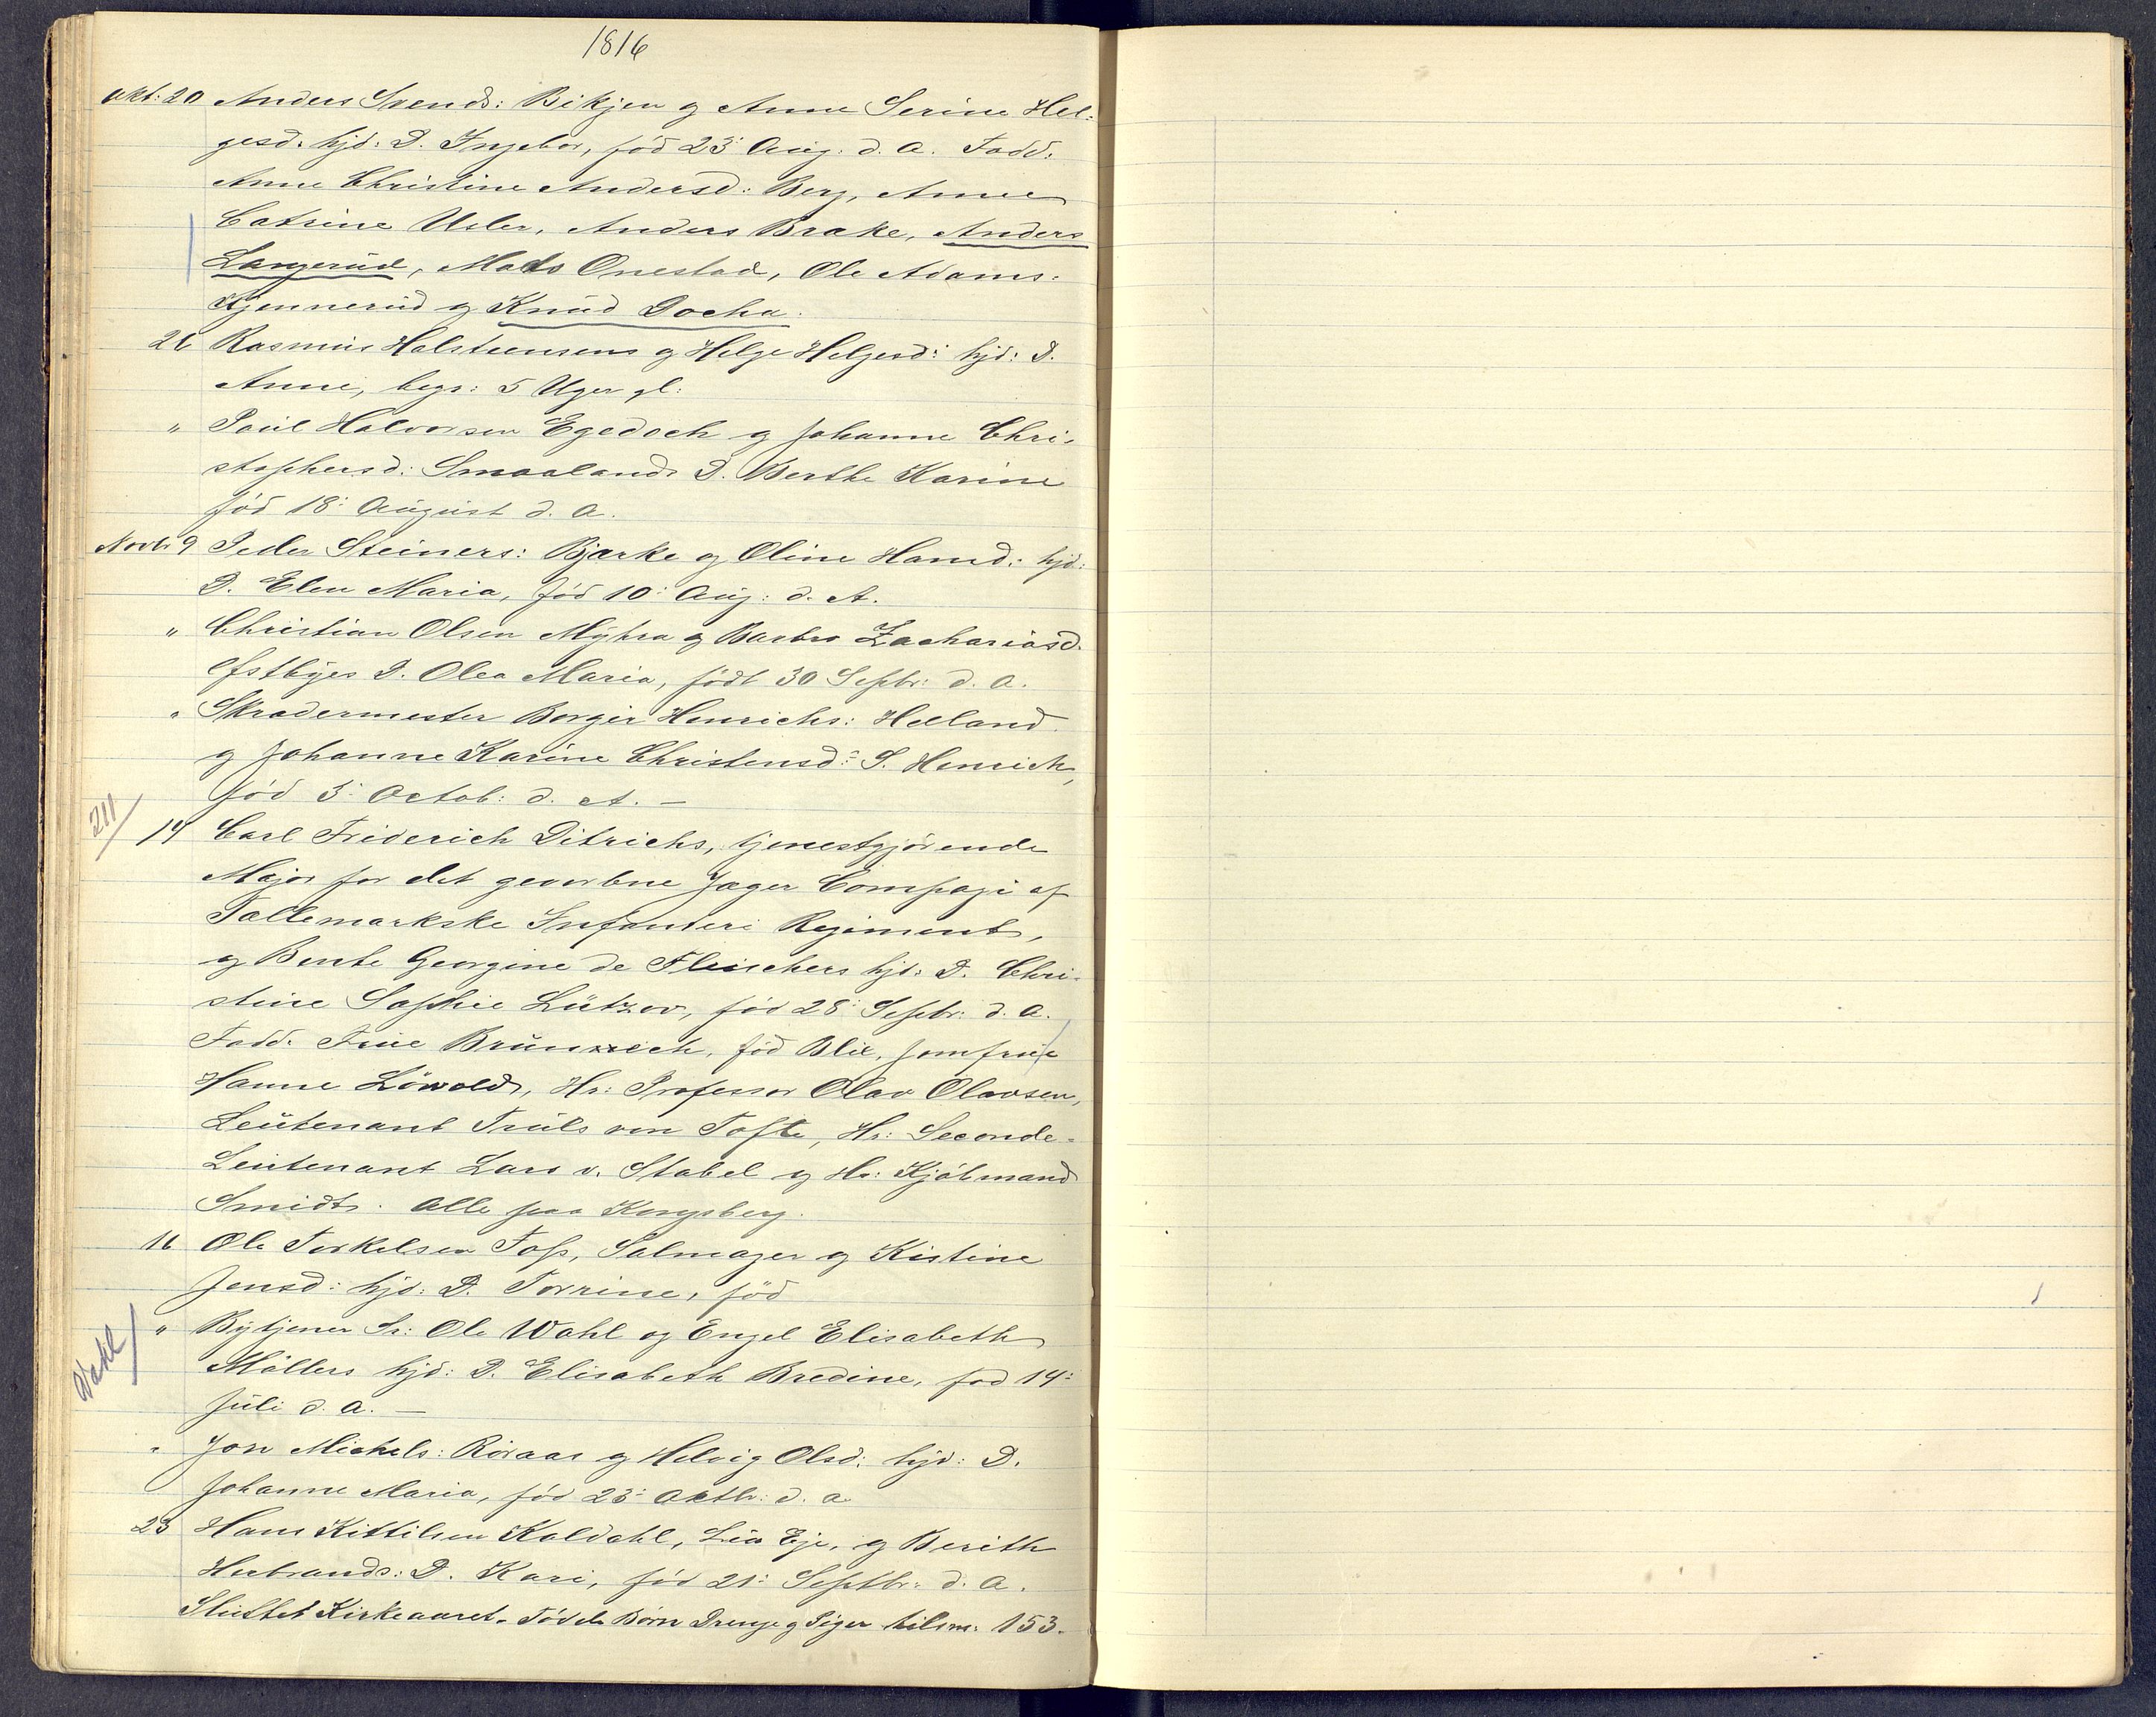 1816
Okt: 20 Anders Svends: Bikjen og Anne Serine Hel-
gesd: hjd: D. Ingebor, fød 23: Aug. d. A. Fadd.
Anne Christine Andersd: Berg, Anne
Catrine Usler, Anders Brake, Anders
Langerud, Mads Onestad, Ole Adams:
Kjennerud og Knud Docka.
26 Rasmus Halsteensens og Helge Helgesd: hjd: D.
Anne, begr: 5 Uger gl:
" Poul Halvorsen Egedoch og Johanne Chri-
stophersd: Smaalands D. Berthe Karine
fød 18: August d. A.
Novb: 9 Peder Steiners: Bjørke og Oline Hansd: hjd:
D. Elen Maria, fød 10: Aug: d. A.
" Christian Olsen Myhra og Barbro Zachariasd.
Efstbyes D. Olea Maria, født 30 Septbr: d. A.
" Skradermester Borger Henrichs: Helland
og Johanne Karine Christensd: S. Henrich,
fød 3: Octob: d. A. —
211/
14 Carl Friderich Ditrichs, tjenestgjørende
Major for det gevorbne Jæger Compagi af
Tællemarkske Infanteri Regiment,
og Bente Georgine de Fleischers hjd: D. Chri-
stine Sophie Lützov, fød 28: Septbr: d. A.
Fadd. Frue Brünnich, fød Blix, Jomfrue
Hanne Löwold, Hr: Professor Olav Olavsen,
Leutenant Truls von Tofte, Hr: Seconde-
Leutenant Lars v. Stabel og Hr: Kjøbmand
Smidt. Alle paa Kongsberg.
16 Ole Torkelsen Foss, Salmager og Kistine
Jensd: hjd: D. Torrine, fød
Wahl/
" Bytjener Sr: Ole Wahl og Engel Elisabeth
Møllers hjd: D. Elisabeth Bredine, fød 14:
Juli d. A. —
" Jon Michels: Røraas og Helvig Olsd: hjd: D.
Johanne Maria, fød 23: Oktb: d. a.
23 Hans Kittilsen Koldahl, Lia Eje, og Berith
Herbrands: D. Kari, fød 21: Septbr: d. A.
Sluttet Kirkeaaret. Fødde Børn Drenge og Piger tilsm: 153.